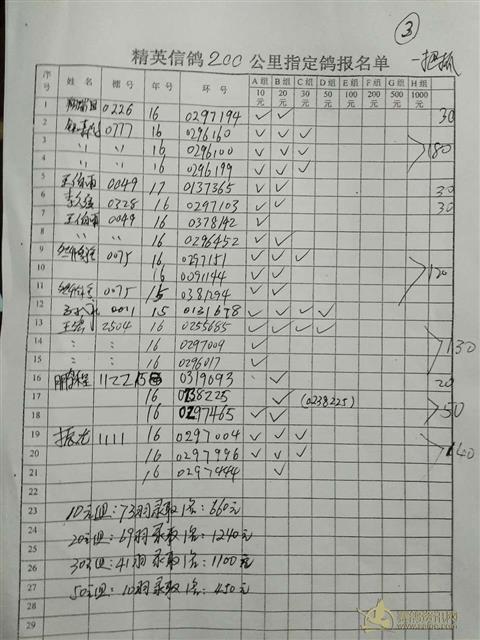 ③
精英信鸽200公里指定鸽报名单 一把抓
序号 姓名 棚号 年号 环号 A组10元 B组20元 C组30元 D组50元 E组100元 F组200元 G组500元 H组1000元
1 0226 16 0297194 ✓ ✓ 30
2 0777 16 0296160 ✓ ✓ ✓
3 〃 〃 16 0296100 ✓ ✓ ✓ >180
4 〃 〃 16 0296199 ✓ ✓ ✓
5 0049 17 0137365 ✓ ✓ 30
6 0328 16 0297103 ✓ ✓ 30
7 0049 16 0378142 ✓
8 〃 〃 16 0296452 ✓ ✓
9 0075 16 0297151 ✓ ✓ ✓
10 16 0091144 ✓ ✓ >120
11 0075 15 0381294 ✓ ✓
12 0011 15 0131678 ✓ ✓ ✓ ✓
13 王 2504 16 0255685 ✓ ✓ ✓ ✓
14 〃 〃 16 0297009 ✓ >130
15 〃 〃 16 0296017 ✓
16 鹏程 1122 15 0319093 ✓ 20
17 16 0238225 ✓ (0238225)
18 16 0297465 ✓ ✓ >50
19 1111 16 0297004 ✓ ✓ ✓
20 16 0297996 ✓ ✓ ✓ >140
21 16 0297444 ✓
22
23 10元组:73羽录取1名:660元
24 20元组:69羽录取1名:1240元
25
26 30元组:41羽录取1名:1100元
27 50元组:10羽录取1名:450元
28
29